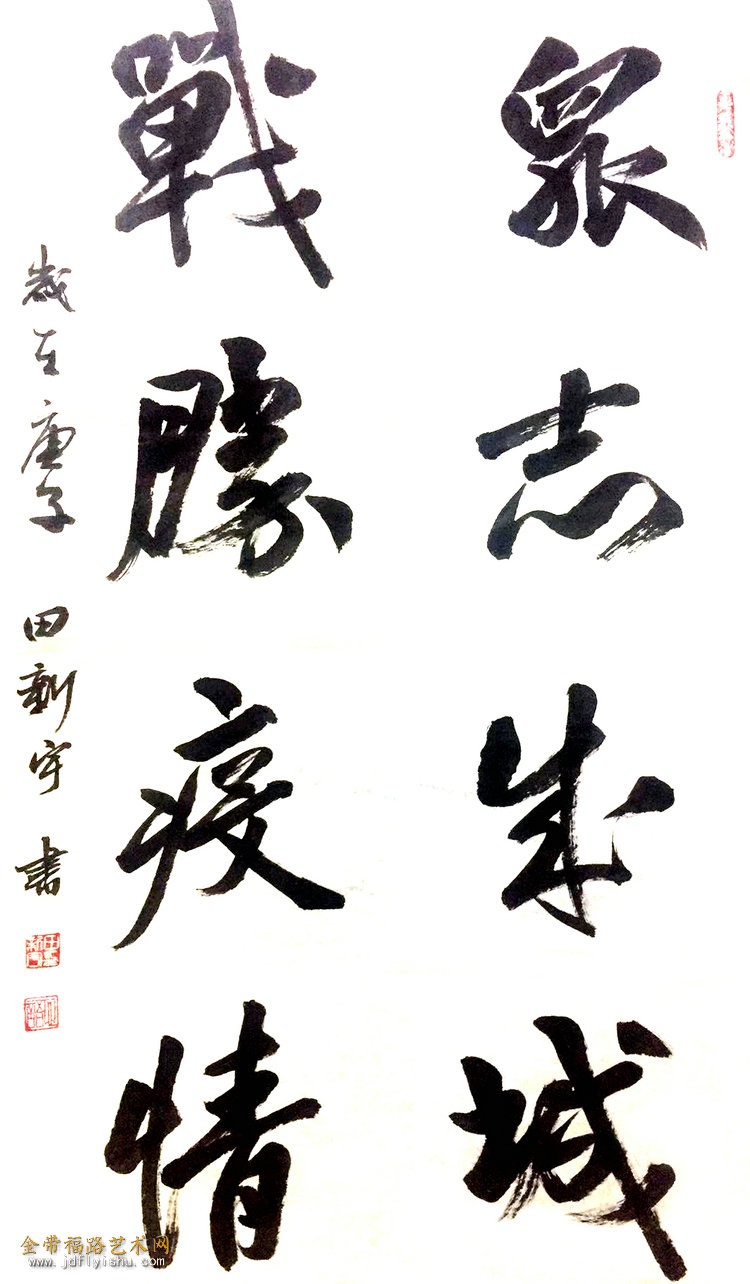 眾志成城
戰勝疫情
歲在庚子 田新宇 書
金带福路艺术网
www.jdflyishu.com